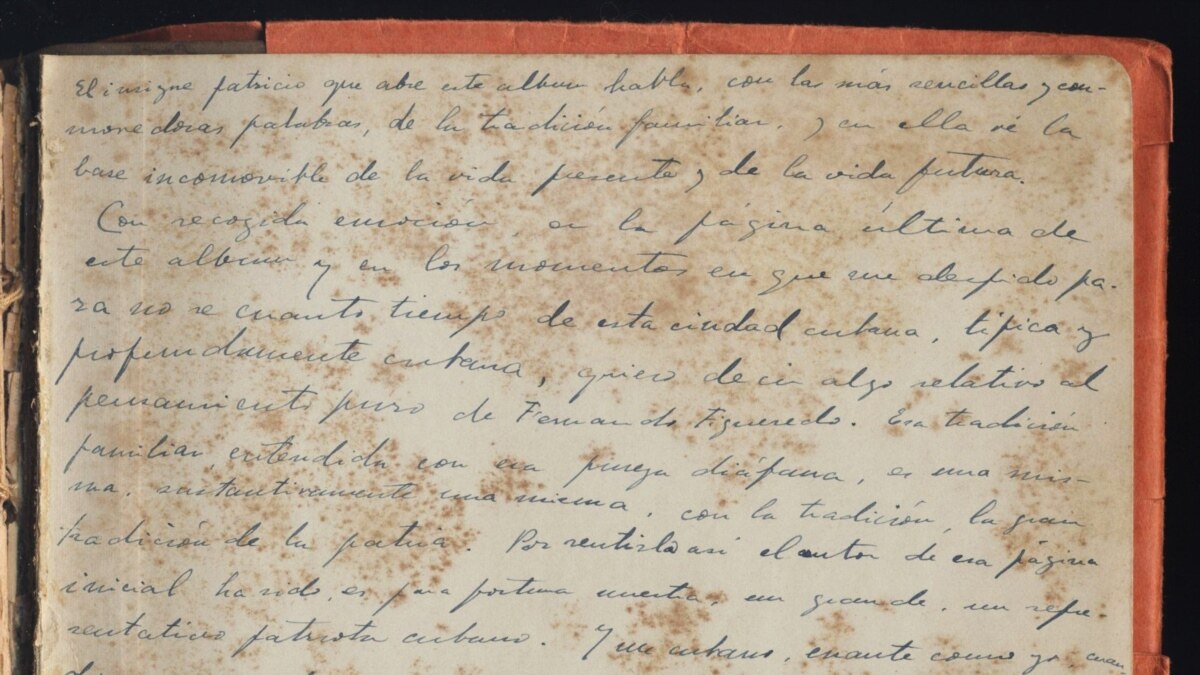 El insigne patricio que abre este album habla, con las más sencillas y con-
movedoras palabras, de la tradición familiar, y en ella vé la
base inconmovible de la vida presente y de la vida futura.
Con recogida emoción, en la página última de
este album y en los momentos en que me despido pa-
ra no se cuanto tiempo de esta ciudad cubana, típica y
profundamente cubana, quiero decir algo relativo al
pensamiento puro de Fernando Figueredo. Esa tradición
familiar, entendida con esa pureza diáfana, es una mis-
ma, sustantivamente una misma, con la tradición, la gran
tradición de la patria. Por sentirla así el autor de esa página
inicial ha sido, es para fortuna nuestra, un grande, un repre-
sentativo patriota cubano. Y un cubano, errante como yo,